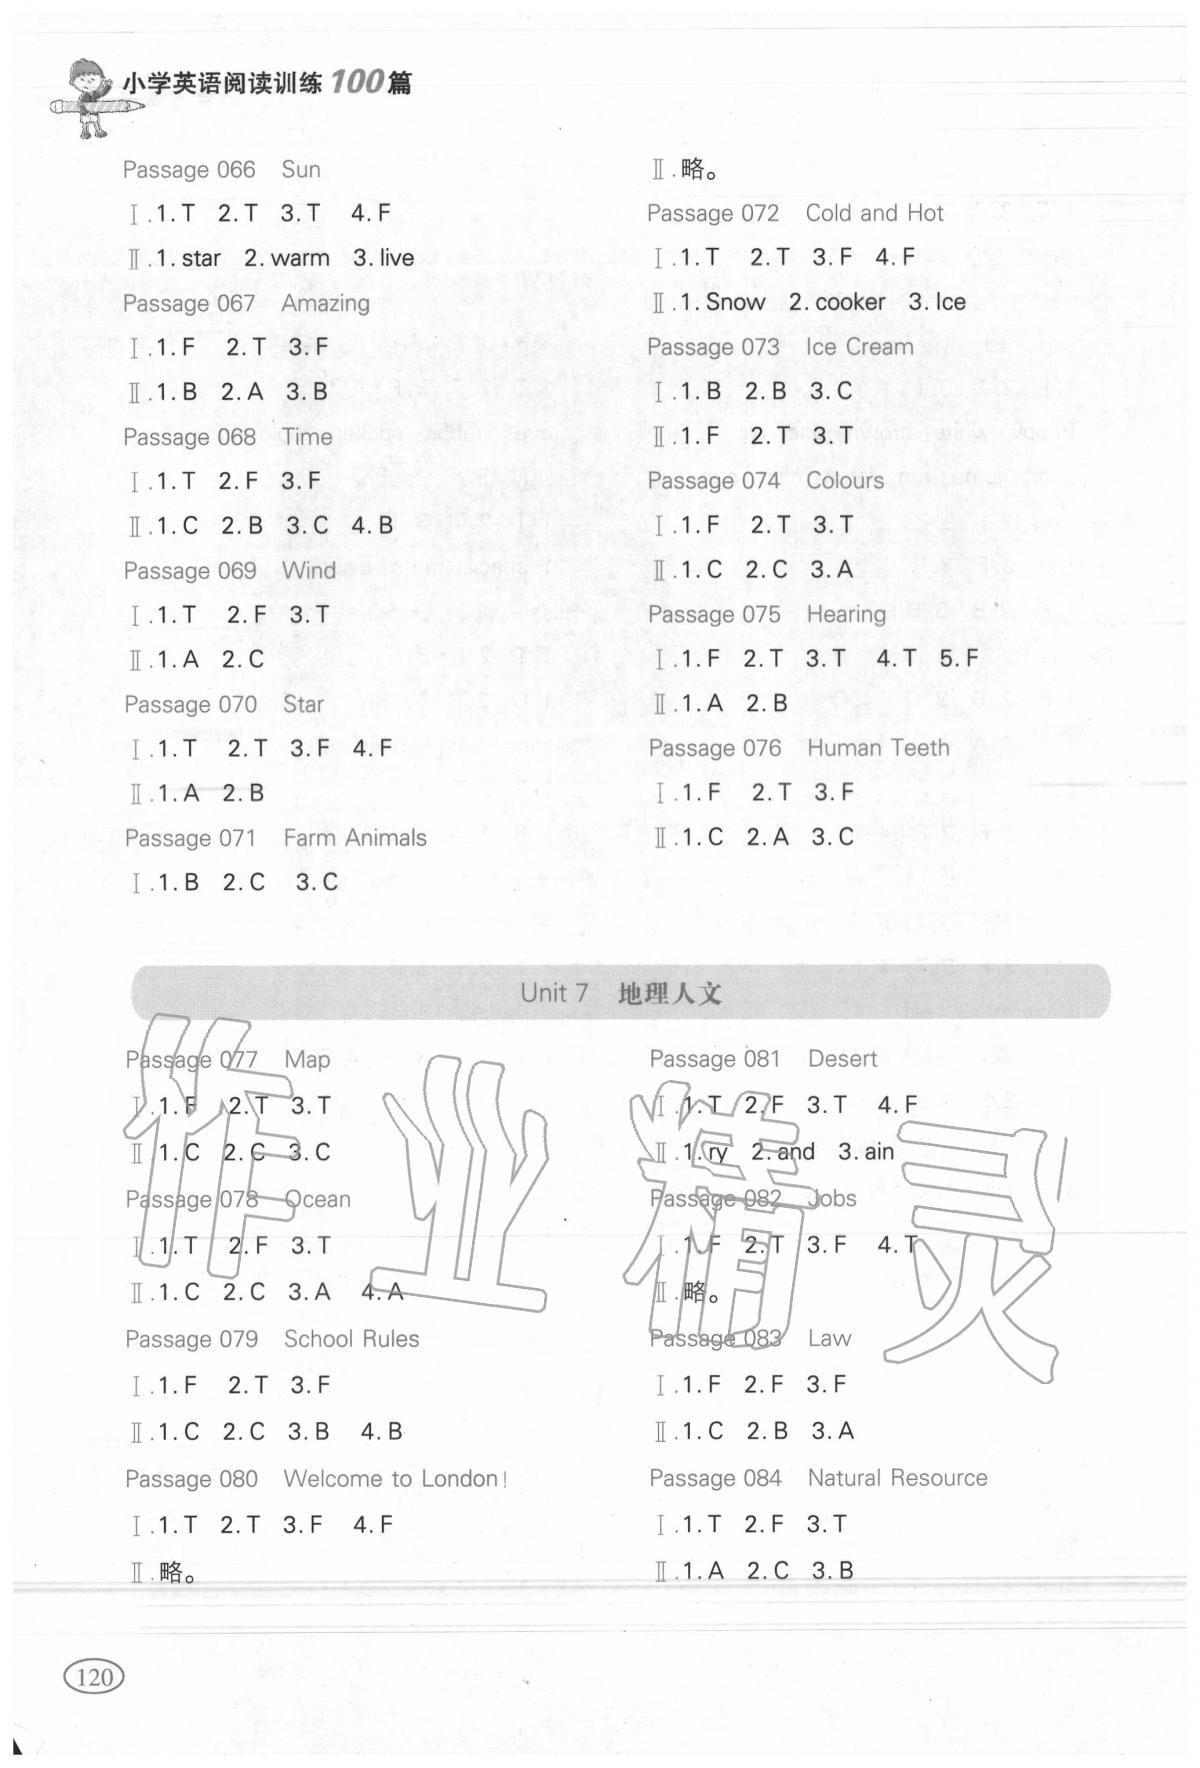 小学英语阅读训练100篇
Passage 066 Sun
Ⅰ.1.T 2.T 3.T 4.F
Ⅱ.1.star 2.warm 3.live
Passage 067 Amazing
Ⅰ.1.F 2.T 3.F
Ⅱ.1.B 2.A 3.B
Passage 068 Time
Ⅰ.1.T 2.F 3.F
Ⅱ.1.C 2.B 3.C 4.B
Passage 069 Wind
Ⅰ.1.T 2.F 3.T
Ⅱ.1.A 2.C
Passage 070 Star
Ⅰ.1.T 2.T 3.F 4.F
Ⅱ.1.A 2.B
Passage 071 Farm Animals
Ⅰ.1.B 2.C 3.C
Ⅱ.略。
Passage 072 Cold and Hot
Ⅰ.1.T 2.T 3.F 4.F
Ⅱ.1.Snow 2.cooker 3.Ice
Passage 073 Ice Cream
Ⅰ.1.B 2.B 3.C
Ⅱ.1.F 2.T 3.T
Passage 074 Colours
Ⅰ.1.F 2.T 3.T
Ⅱ.1.C 2.C 3.A
Passage 075 Hearing
Ⅰ.1.F 2.T 3.T 4.T 5.F
Ⅱ.1.A 2.B
Passage 076 Human Teeth
Ⅰ.1.F 2.T 3.F
Ⅱ.1.C 2.A 3.C
Unit 7 地理人文
Passage 077 Map
Ⅰ.1.F 2.T 3.T
Ⅱ.1.C 2.C 3.C
Passage 078 Ocean
Ⅰ.1.T 2.F 3.T
Ⅱ.1.C 2.C 3.A 4.A
Passage 079 School Rules
Ⅰ.1.F 2.T 3.F
Ⅱ.1.C 2.C 3.B 4.B
Passage 080 Welcome to London!
Ⅰ.1.T 2.T 3.F 4.F
Ⅱ.略。
Passage 081 Desert
Ⅰ.1.T 2.F 3.T 4.F
Ⅱ.1.ry 2.and 3.ain
Passage 082 Jobs
Ⅰ.1.F 2.T 3.F 4.T
Ⅱ.略。
Passage 083 Law
Ⅰ.1.F 2.F 3.F
Ⅱ.1.C 2.B 3.A
Passage 084 Natural Resource
Ⅰ.1.T 2.F 3.T
Ⅱ.1.A 2.C 3.B
作业精灵
120